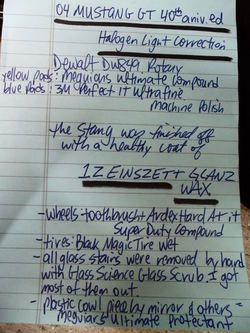 04 MUSTANG GT 40th aniv.ed
Halogen Light Correction
Dewalt DW849 Rotary
yellow pads: meguiars ultimate compound
blue pads: 3M Perfect it ultrafine
machine Polish
the Stang was finished off
with a healthy coat of
1Z EINSZETT GLANZ
WAX
- wheels-toothbrush Ardex Hard At it
Super Duty Compound
- tires: Black Magic Tire Wet
- all glass stains were removed by hand
with Glass Science Glass Scrub. I got
most of them out.
- plastic cowl, piece by mirror & others =
meguiar's Ultimate Protectant